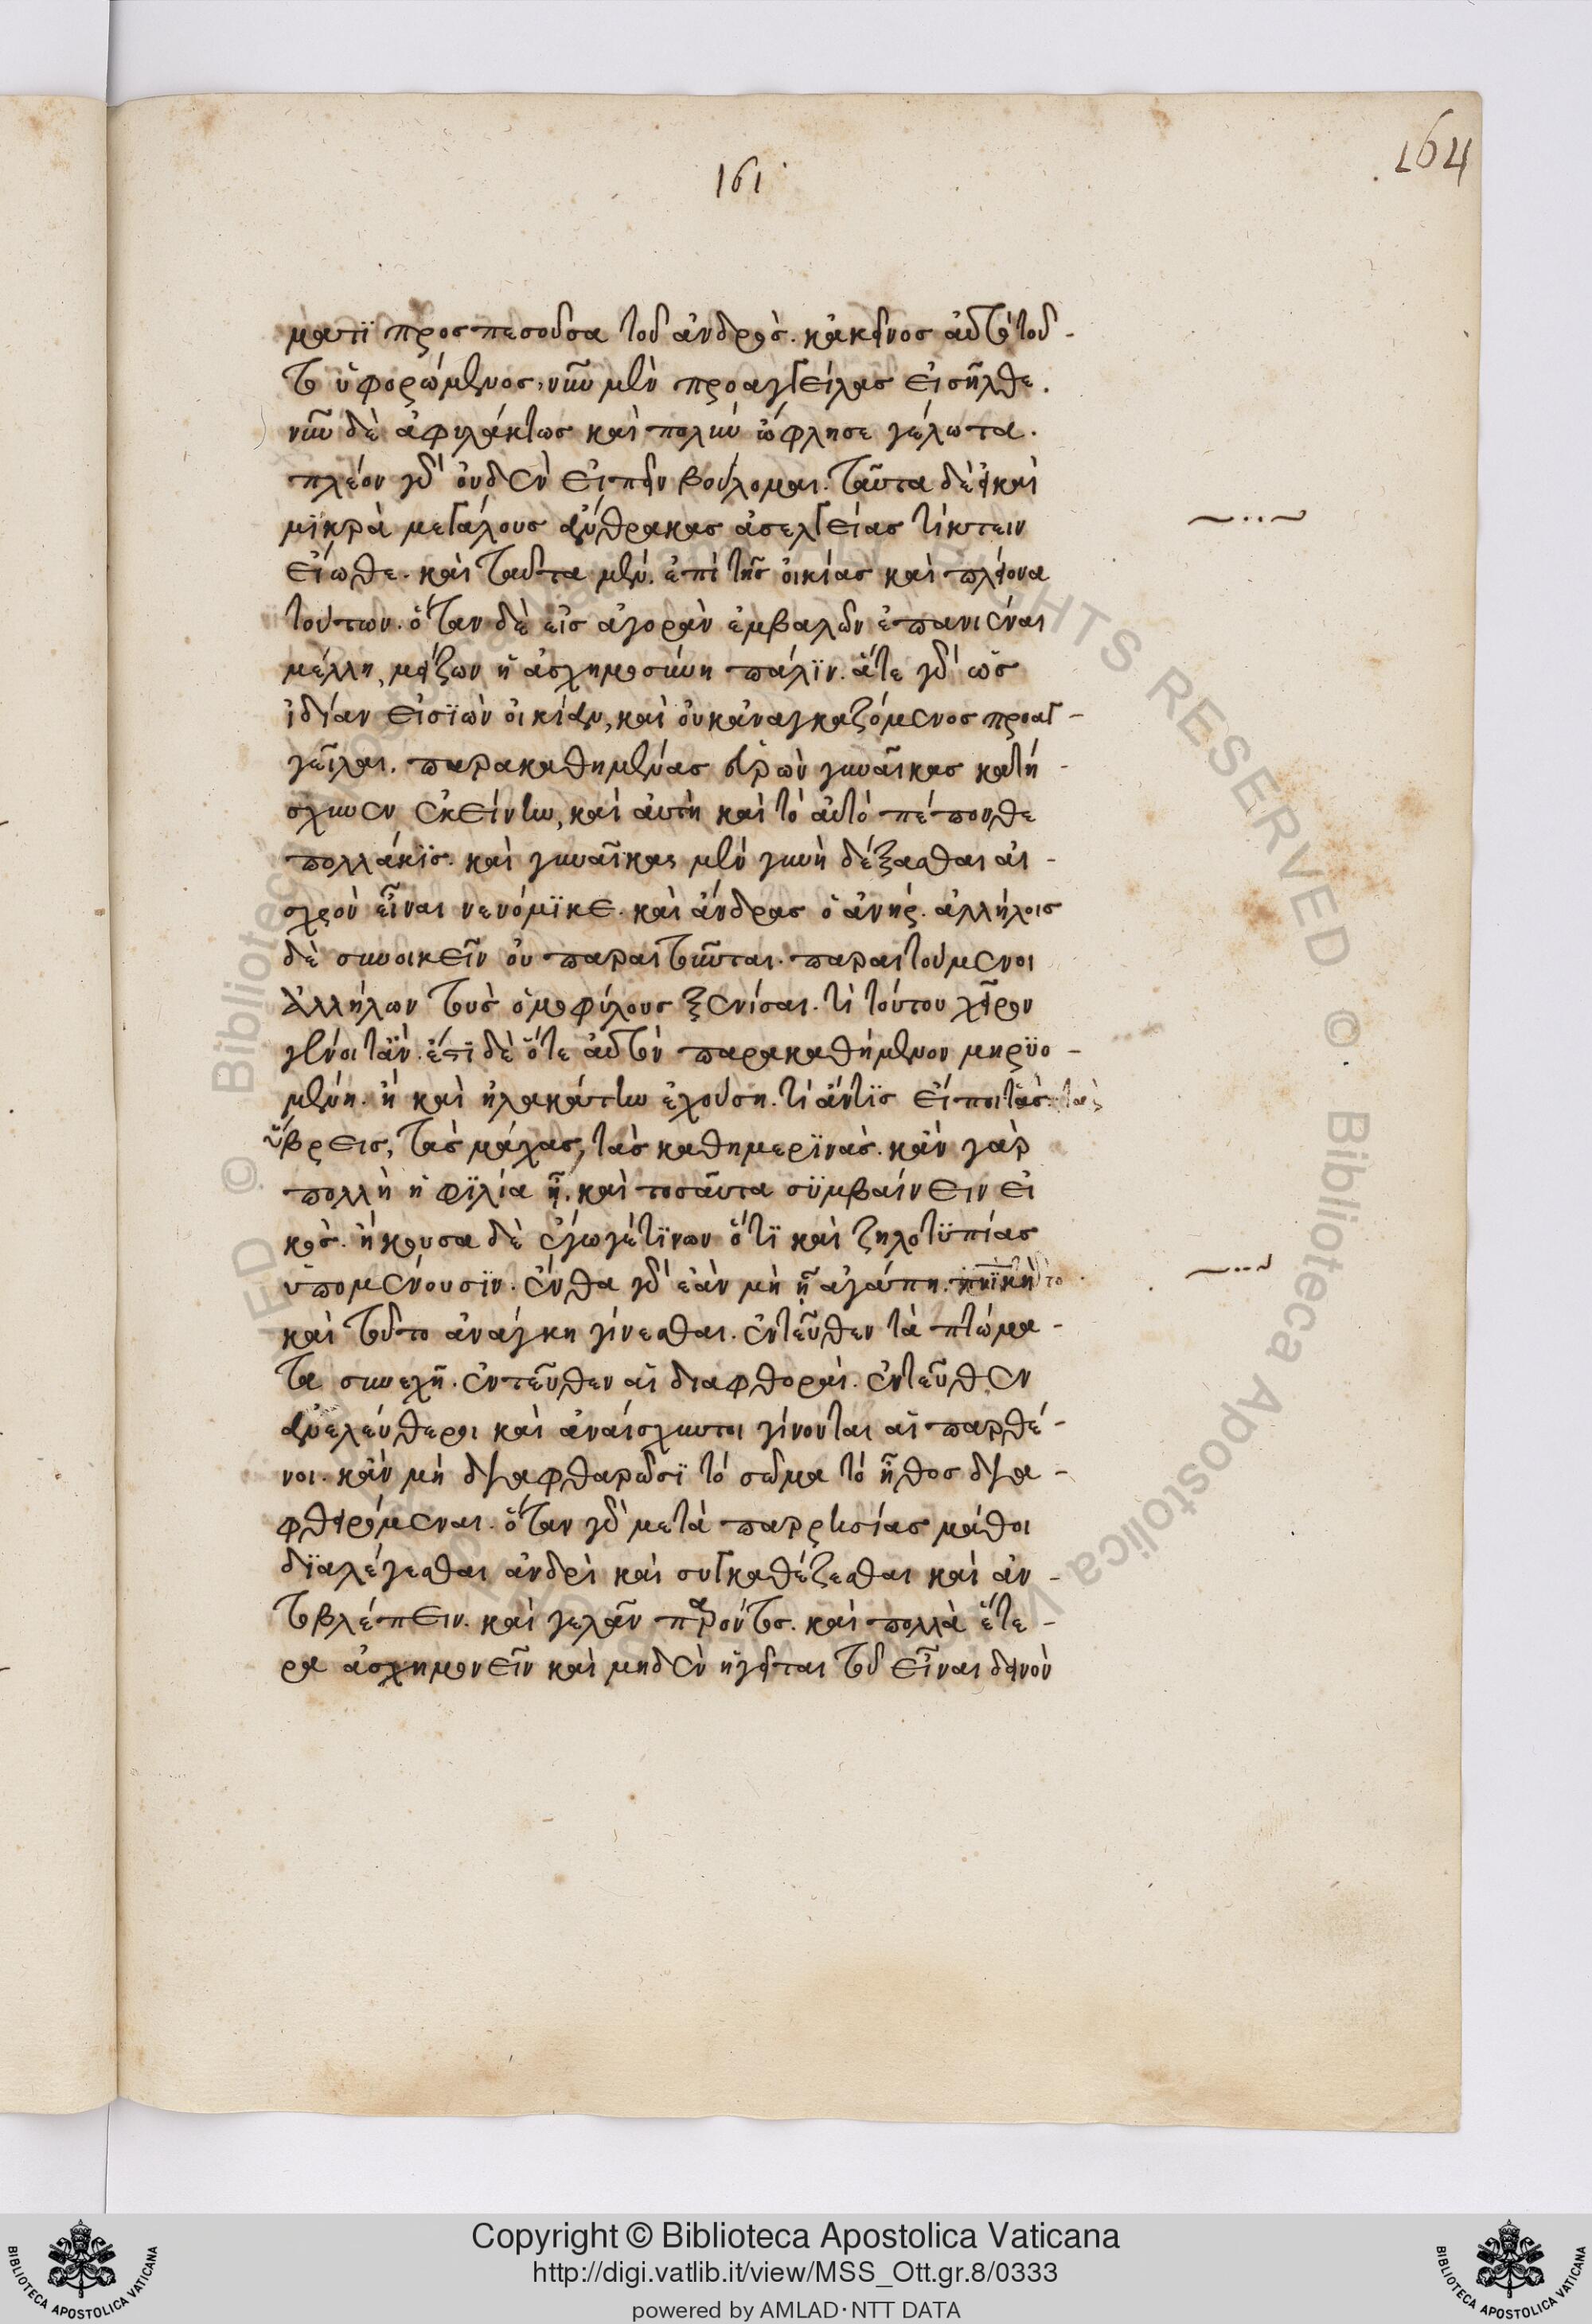 161
164
ματϊ προσπεσοῦσα τοῦ ἀνδρὸς. κἀκεῖνος αὐτὸ τοῦ-
το ὑφορώμενος, νῦν μὲν προαγγείλας εἰσῆλθε.
νῦν δὲ ἀφυλάκτως καὶ πολὺν ὤφλησε γέλωτα.
πλέον γὰρ οὐδὲν εἰπεῖν βούλομαι. ταῦτα δὲ εἰ καὶ
μϊκρὰ μεγάλους ἄνθρακας ἀσελγείας τίκτειν
εἴωθε. καὶ ταῦτα μὲν ἐπὶ τῆς οἰκίας καὶ πλείονα
τούτων. ὅταν δὲ εἰς ἀγορὰν ἐμβαλὼν ἐπανιέναι
μέλλη, μείζων ἡ ἀσχημοσύνη πάλϊν. ἅτε γὰρ ὡς
ἰδίαν εἰσϊὼν οἰκίαν, καὶ οὐκ ἀναγκαζόμενος προαγ-
γεῖλαι. παρακαθημένας εὑρὼν γυναῖκας κατή-
σχυνεν ἐκείνην, καὶ αὐτὴ καὶ τὸ αὐτὸ πέπονθε
πολλάκϊς. καὶ γυναῖκας μὲν γυνὴ δέξασθαι αἰ-
σχρὸν εἶναι νενόμϊκε. καὶ ἄνδρας ὁ ἀνήρ. ἀλλήλοις
δὲ συνοικεῖν οὐ παραιτοῦνται. παραιτούμενοι
ἀλλήλων τοὺς ὁμοφύλους ξενίσαι. τὶ τούτου χεῖρον
γένοιτ ἂν. ἔτϊ δὲ ὅτε αὐτὸν παρακαθήμενον μηρϋο-
μένη. ἢ καὶ ἠλακάτην ἐχούση. τί ἄν τϊς εἴποι τὰς
ὕβρεις, τὰς μάχας, τὰς καθημερϊνὰς. κἂν γὰρ
πολλὴ ἡ φϊλία ἦ. καὶ τοσαῦτα σϋμβαίνειν εἰ
κὸς. ἤκουσα δὲ ἐγώ γέ τϊνων ὅτϊ καὶ ζηλοτϋπίας
ὑπομένουσϊν. ἔνθα γὰρ ἐὰν μὴ ἦ ἀγάπη
καὶ τοῦτο ἀνάγκη γίνεσθαι. ἐντεῦθεν τὰ πτώμα-
τα συνεχῆ. ἐντεῦθεν αἱ διαφθοραὶ. ἐντεῦθεν
ἀνελεύθεροι καὶ ἀναίσχυντοι γίνονται αἱ παρθέ-
νοι. κἂν μὴ διαφθαρῶσϊ τὸ σῶμα τὸ ἦθος δια-
φθειρόμεναι. ὅταν γὰρ μετὰ παρρησίας μάθοι
δϊαλέγεσθαι ἀνδρὶ καὶ συγκαθέζεσθαι καὶ ἀν-
τϊβλέπειν. καὶ γελᾶν παρόντος. καὶ πολλὰ ἕτε-
ρα ἀσχημονεῖν καὶ μηδὲν ἡγεῖται τοῦ εἶναι δεινὸν
Copyright © Biblioteca Apostolica Vaticana
http://digi.vatlib.it/view/MSS_Ott.gr.8/0333
powered by AMLAD·NTT DATA
BIBLIOTECA APOSTOLICA VATICANA
BIBLIOTECA APOSTOLICA VATICANA